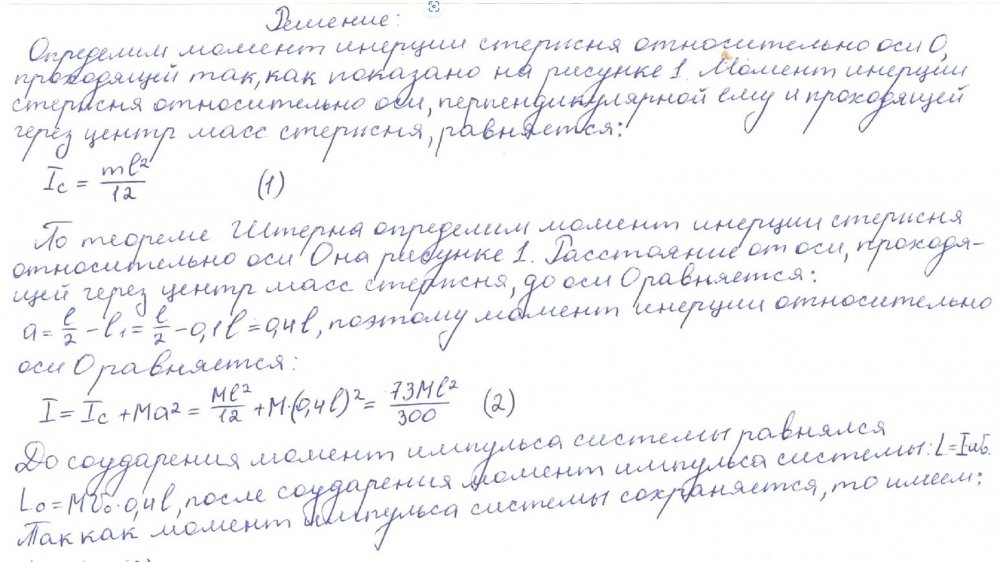 Решение:
Определим момент инерции стержня относительно оси О,
проходящей так, как показано на рисунке 1. Момент инерции
стержня относительно оси, перпендикулярной ему и проходящей
через центр масс стержня, равняется:
I_c = ml²/12 (1)
По теореме Штерна определим момент инерции стержня
относительно оси О на рисунке 1. Расстояние от оси, проходя-
щей через центр масс стержня, до оси О равняется:
a = l/2 - l₁ = l/2 - 0,1l = 0,4l, поэтому момент инерции относительно
оси О равняется:
I = I_c + Ma² = Ml²/12 + M·(0,4l)² = 73Ml²/300 (2)
До соударения момент импульса системы равнялся
L₀ = Mv₀·0,4l, после соударения момент импульса системы: L =
Так как момент импульса системы сохраняется, то имеем: